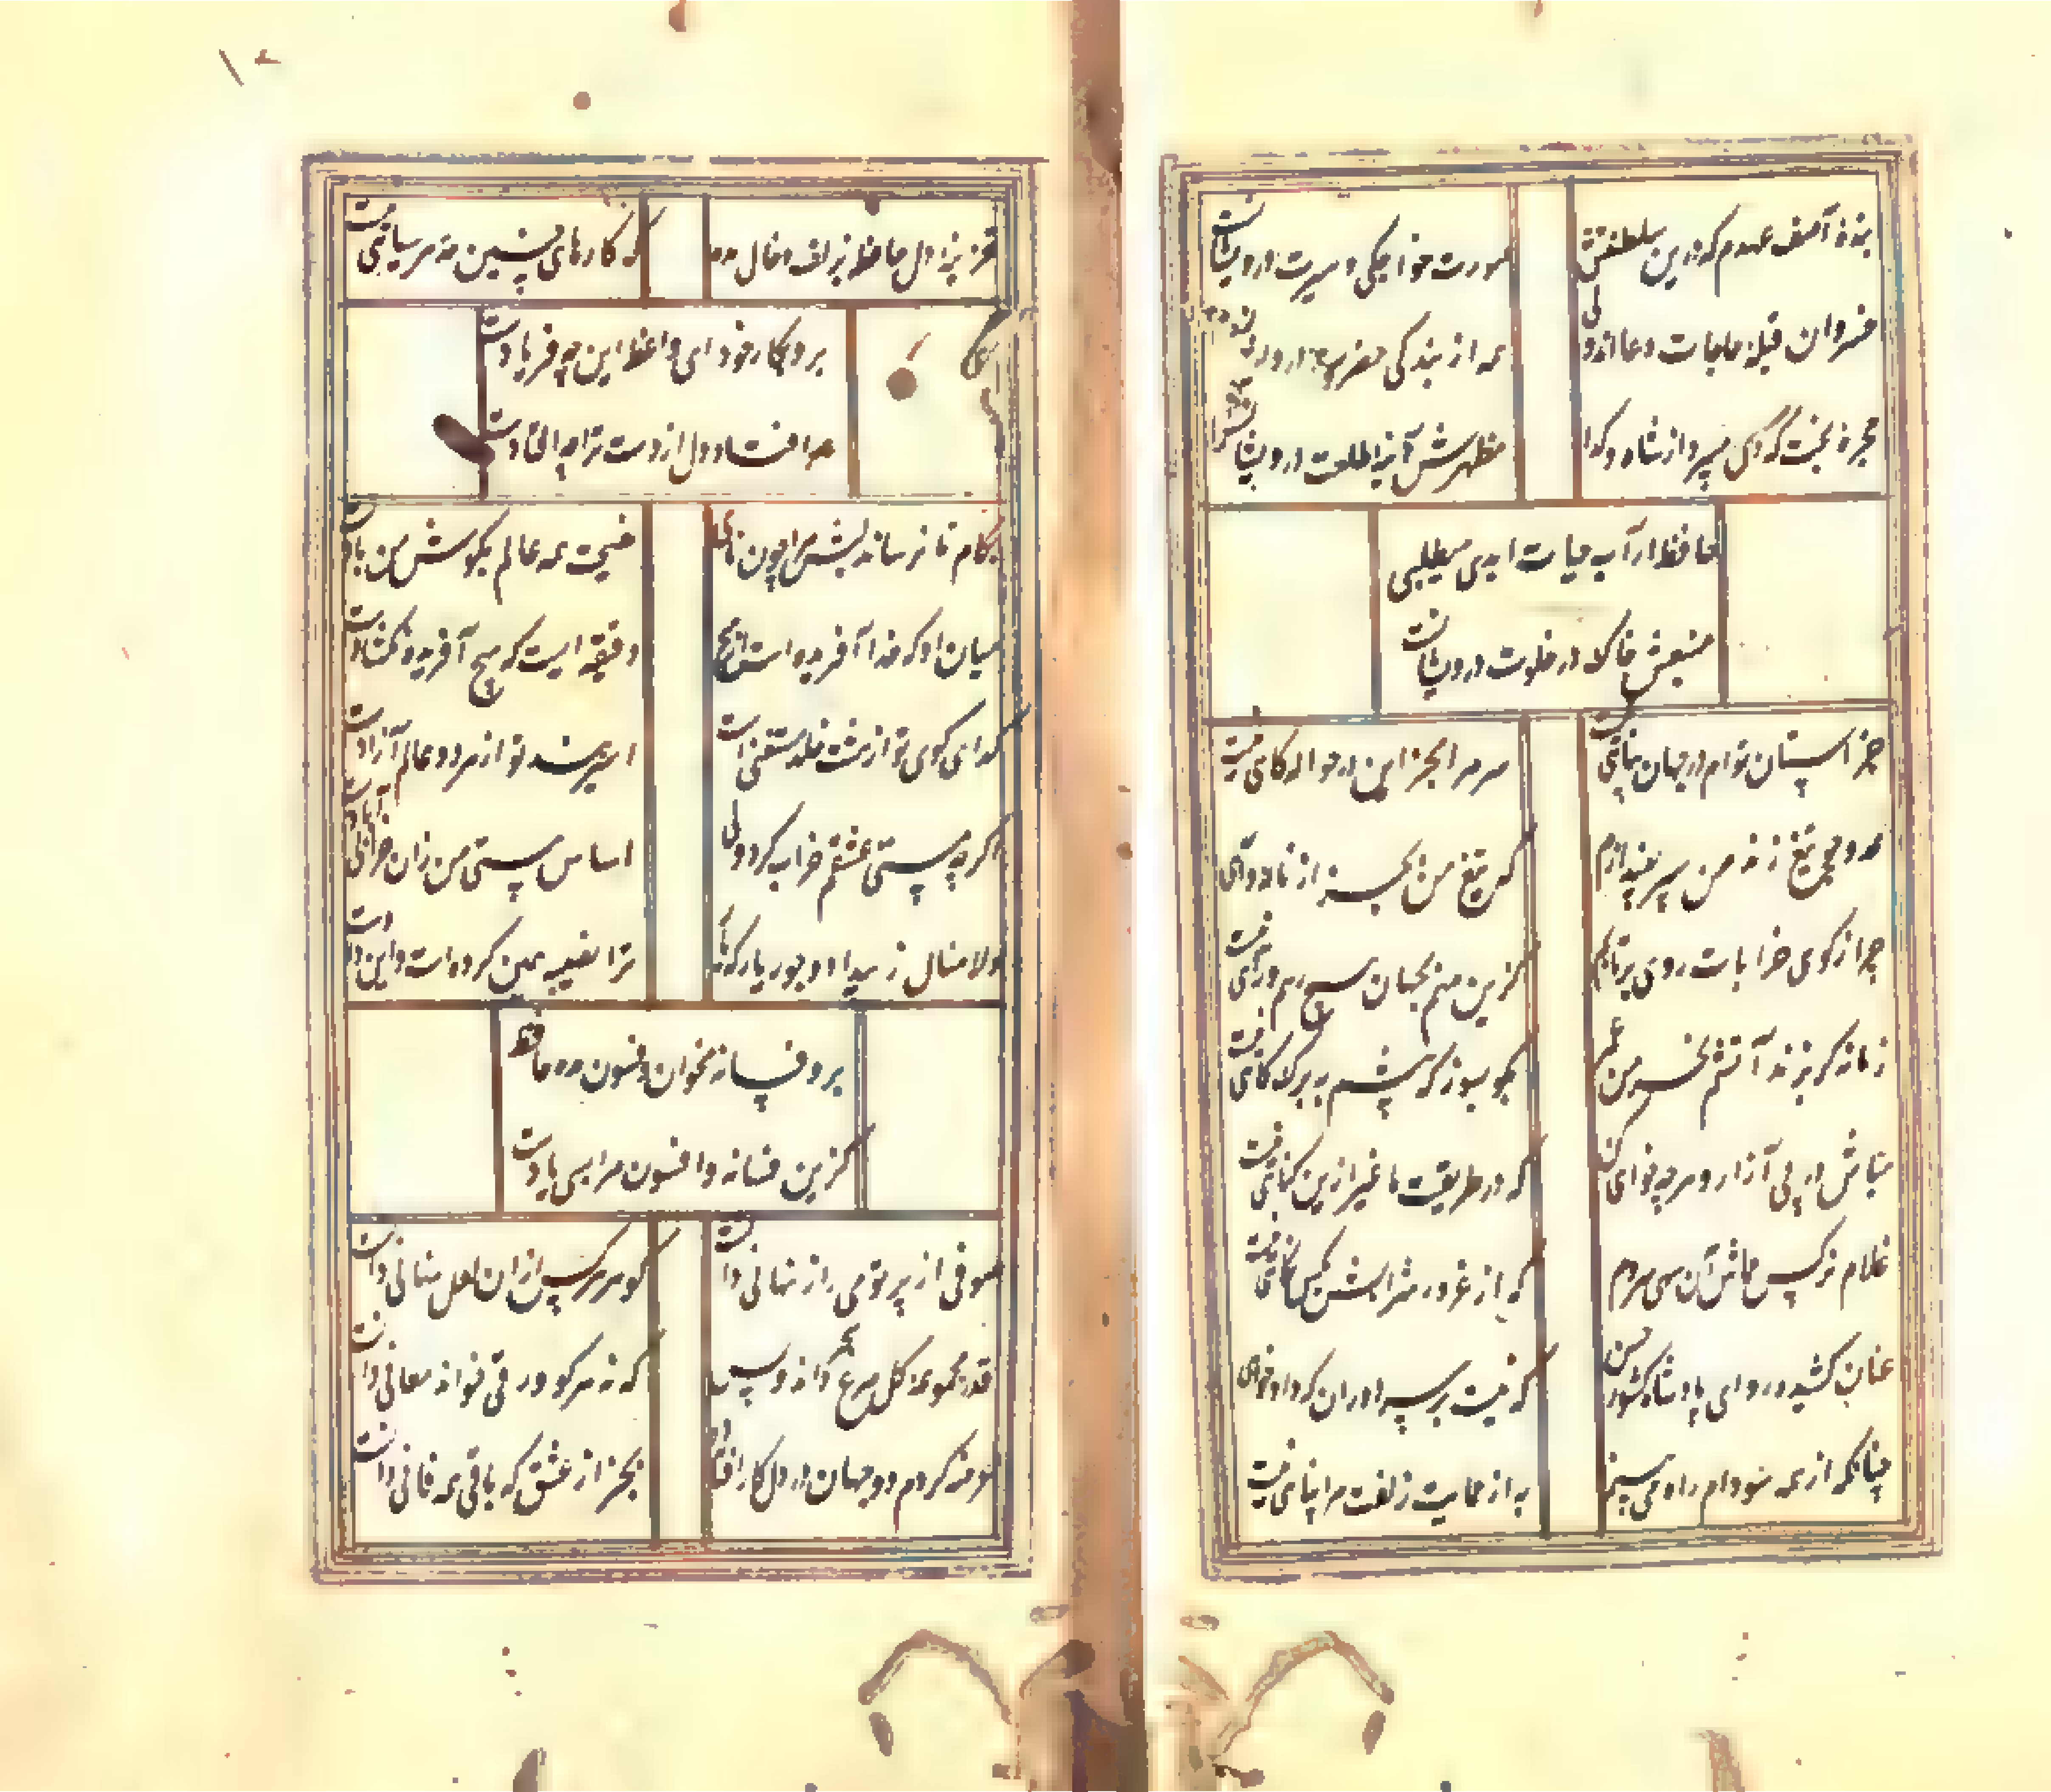 بنده آصف عهدم که درین سلطنتش
صورت خواجگی و سیرت درویشانست
خسروان قبله حاجات دعااند ولی
از بندگی حضرت درویشانست
مظهرش آینه طلعت درویشانست
حافظ ار آب حیات ابدی میطلبی
منبعش خاک در خلوت درویشانست
جز آستان توام در جهان پناهی نیست
سر مرا بجز این در حواله کاهی نیست
عدو چو تیغ زند من سپر بیندازم
که تیغ من بجز از ناله و آهی نیست
چرا ز کوی خرابات روی برتابم
کزین بهم بجهان هیچ رسم و راهی نیست
زمانه کر بزند آتشم بخرمن عمر
بکو بسوز که بیشم به برک کاهی نیست
مباش در پی آزار و هر چه خواهی کن
که در طریقت ما غیر ازین کناهی نیست
غلام نرکس جماش آن سهی سروم
که از غرور شرابش بکس نکاهی نیست
عنان کشیده رو ای پادشاه کشور حسن
که نیست بر سر راهی که دادخواهی نیست
چنانکه از همه سو دام راه می بینم
به از حمایت زلفت مرا پناهی نیست
خزینه دل حافظ بزلف و خال مده
که کارهای چنین حد هر سیاهی نیست
برو بکار خود ای واعظ این چه فریادست
مرا فتاد دل از دست ترا چه افتادست
بکام تا نرساند لبش مرا چون نای
نصیحت همه عالم بکوش من بادست
میان او که خدا آفریده است از هیچ
دقیقه ایست که هیچ آفریده نکشادست
کدای کوی تو از هشت خلد مستغنی است
اسیر بند تو از هر دو عالم آزادست
اکر چه مستی عشقم خراب کرد ولی
اساس هستی من زان خراب آبادست
دلا منال ز بیداد و جور یار که یار
ترا نصیب همین کرده است و این دادست
برو فسانه مخوان و فسون مدم حافظ
کزین فسانه و افسون مرا بسی یادست
صوفی از پرتو می راز نهانی دانست
کوهر هر کس ازان لعل نهانی دانست
قدر مجموعه کل مرغ سحر داند و بس
که نه هر کو ورقی خواند معانی دانست
عرضه کردم دو جهان در دل کار افتاده
بجز از عشق که باقی همه فانی دانست